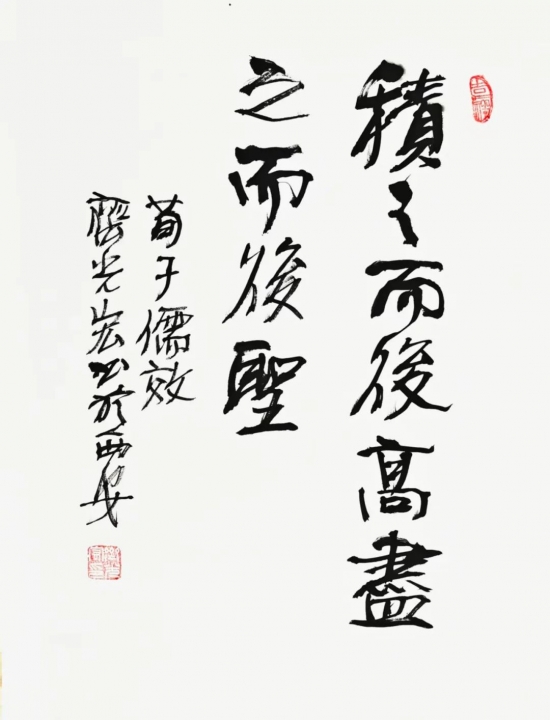 積之而後高盡
之而後聖
荀子儒效
光宏書於西安